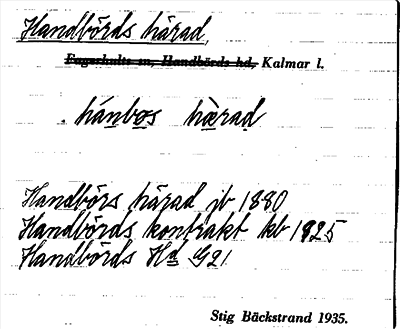 Handbörds härad
Fagerhults sn, Handbörds hd, Kalmar l.
hánbos hærad
Handbörs härad jb 1880
Handbörds kontrakt kb 1825
Handbörds Hd G21
Stig Bäckstrand 1935.